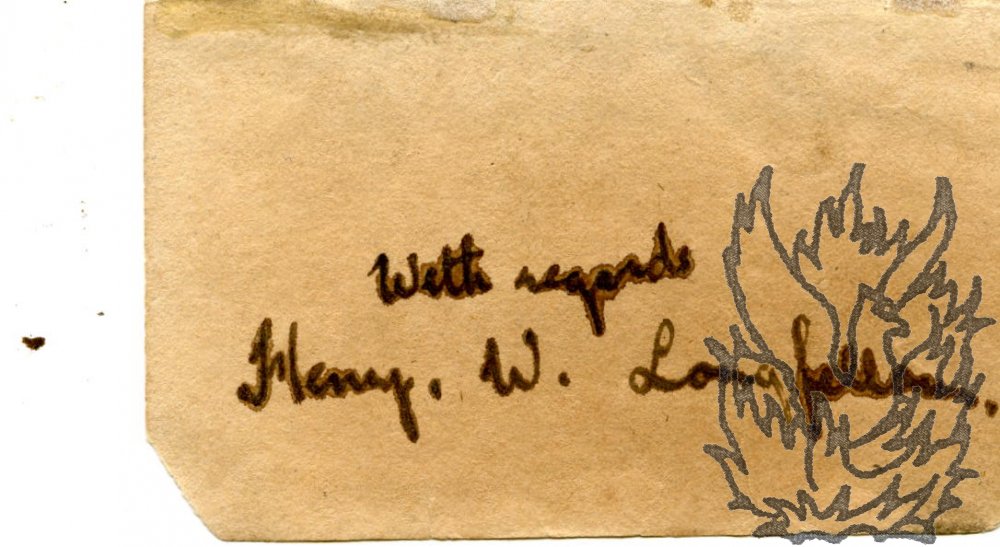 With regards
Henry. W. Longfellow.